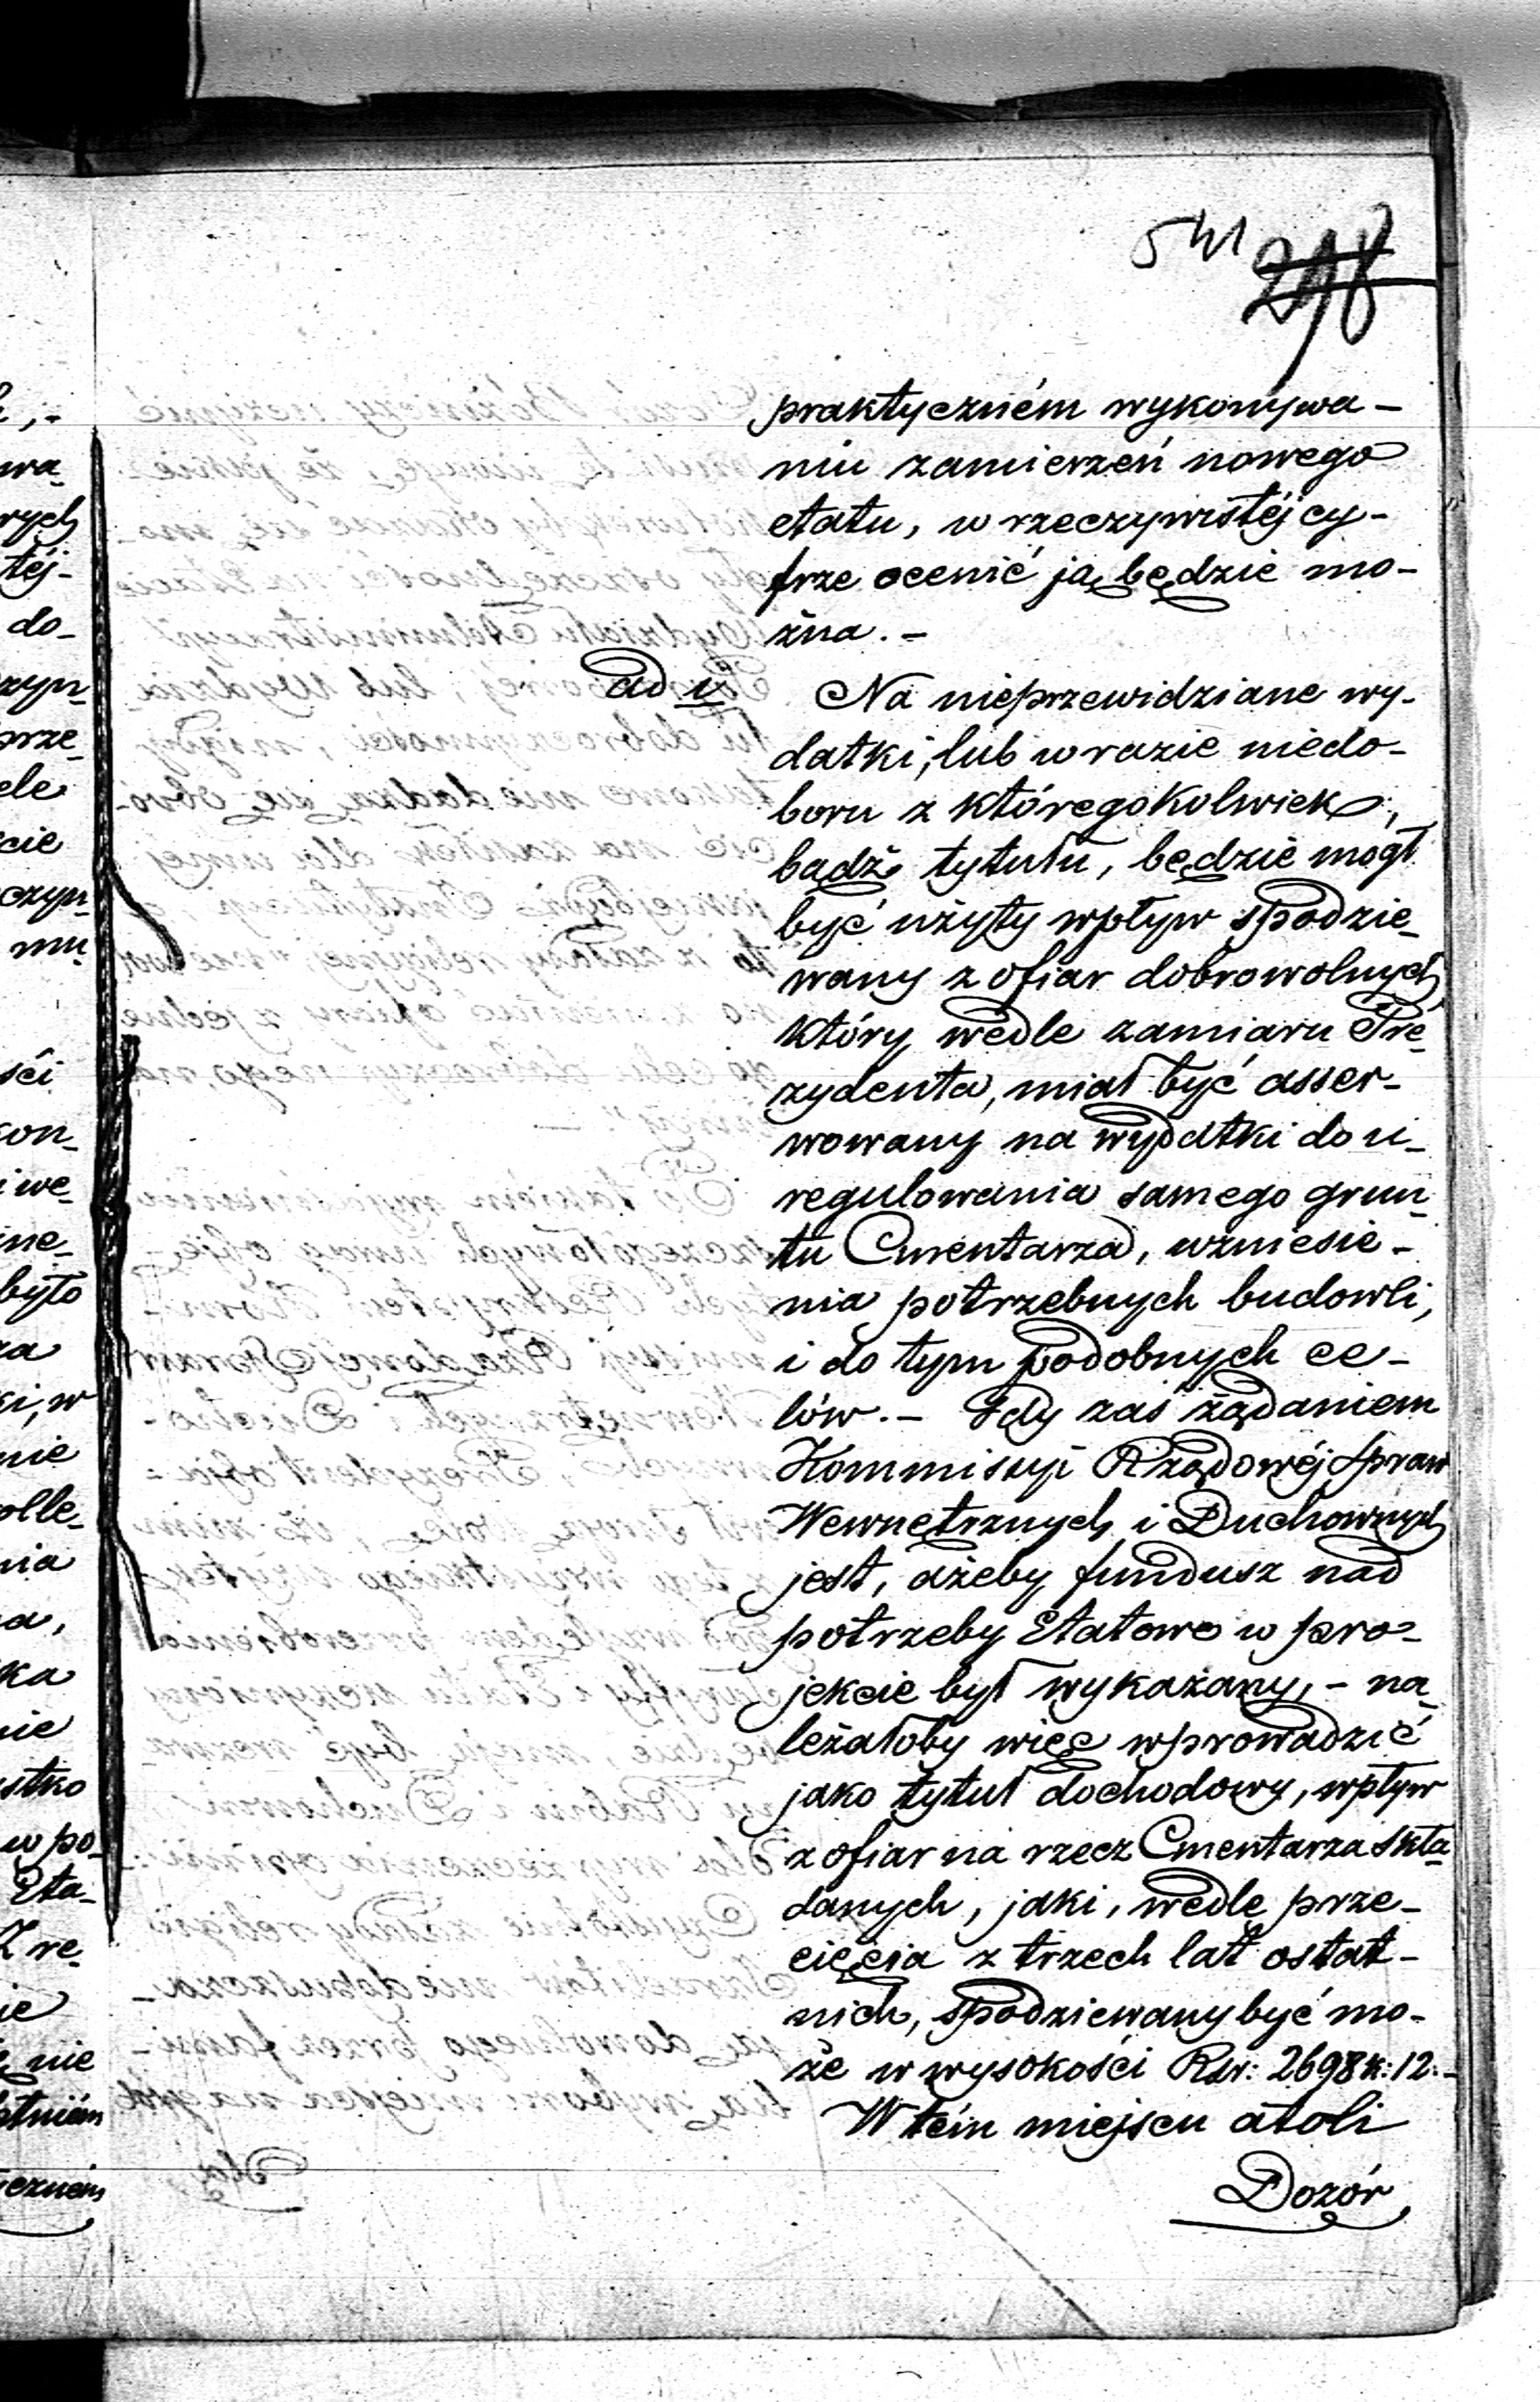 541
298
praktyczném wykonywa-
niu zamierzeń nowego
etatu, w rzeczywistéj cy-
frze ocenić ją będzie mo-
żna.-
ad V
Na nieprzewidziane wy-
datki, lub w razie niedo-
boru z któregokolwiek,
bądź tytułu, będzie mógł
być użyty wpływ spodzie-
wany z ofiar dobrowolnych,
który wedle zamiaru Pre-
zydenta, miał być asser-
wowany na wydatki do u-
regulowania samego grun-
tu Cmentarza, wzniesie-
nia potrzebnych budowli,
i do tym podobnych ce-
lów.- Gdy zaś żądaniem
Kommisyi Rządowéj Spraw
Wewnętrznych i Duchownych
jest, ażeby fundusz nad
potrzeby Etatowe w pro-
jekcie był wykazany,- na-
leżałoby więc wprowadzić
jako tytuł dochodowy, wpływ
z ofiar na rzecz Cmentarza skła-
danych, jaki, wedle prze-
cięcia z trzech lat ostat-
nich, spodziewany być mo-
że w wysokości Rsr: 2698 k: 12.-
W tém miejscu atoli
Dozór